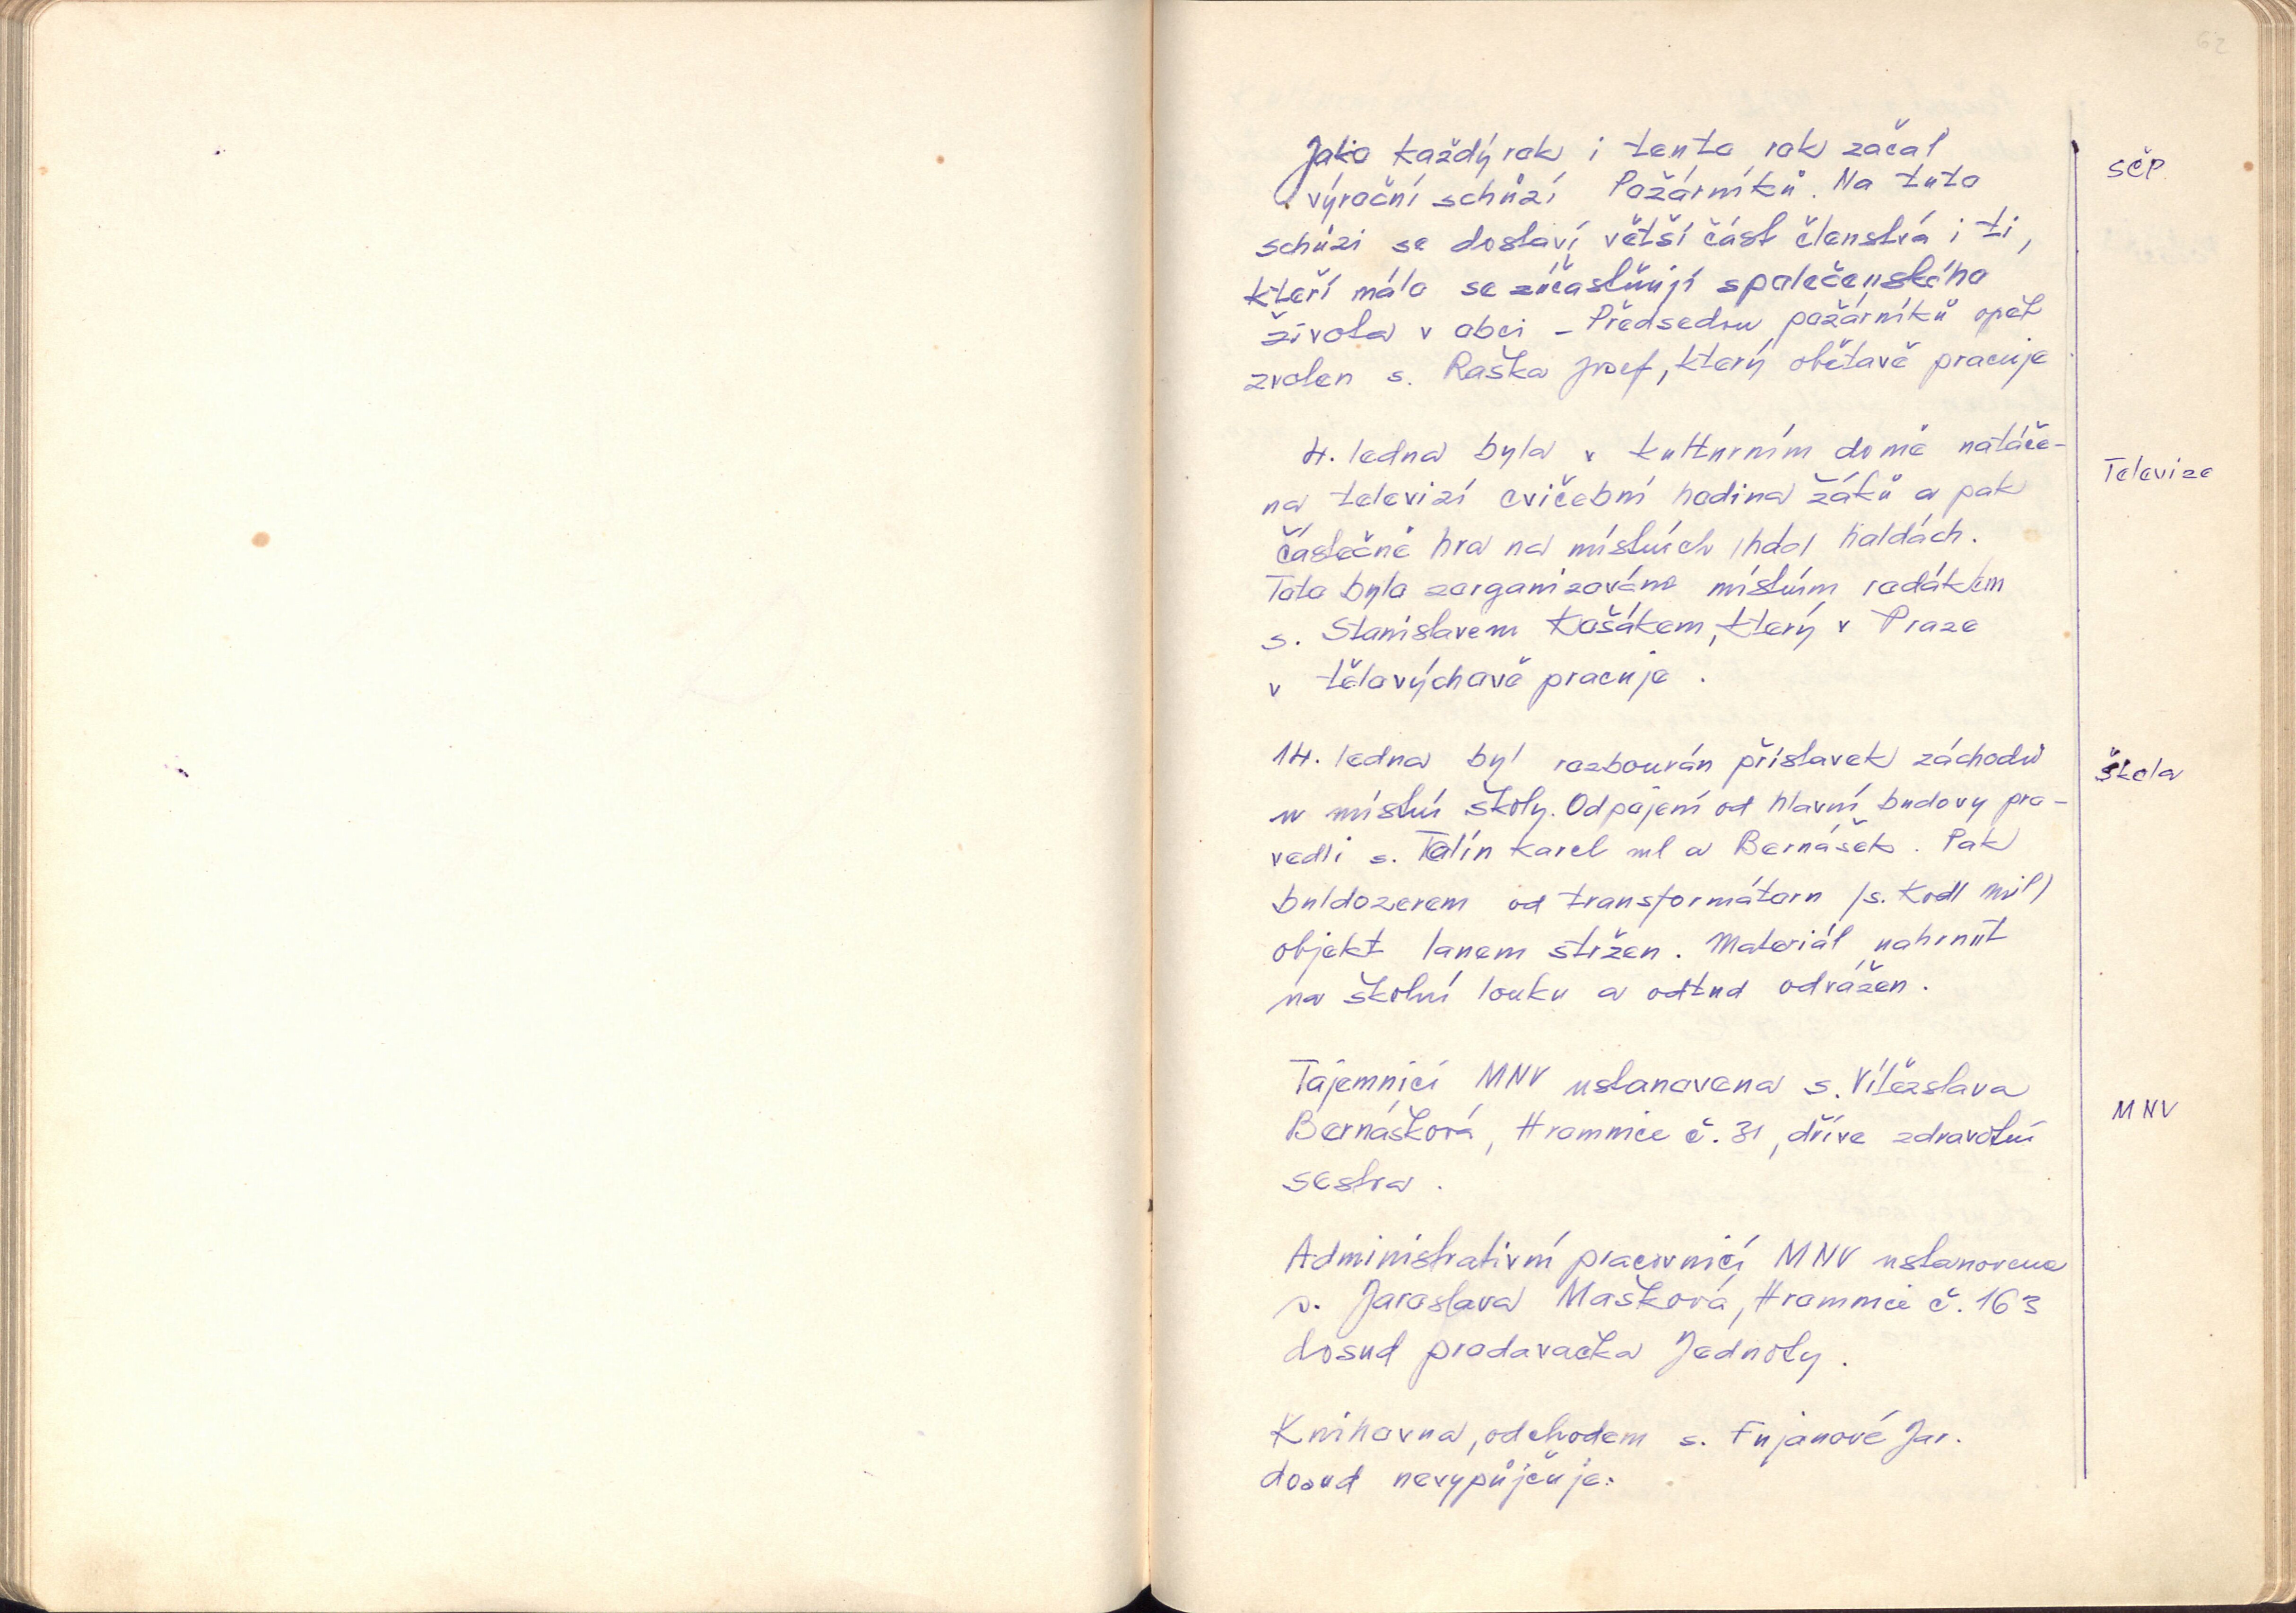 62
Jako každý rok i tento rok začal
výroční schůzí Požárníků. Na tuto
schůzi se dostaví větší část členstvá i ti,
kteří málo se zúčastňují společenského
života v obci - Předsedou požárníků opět
zvolen s. Raška Josef, který obětavě pracuje
SČP
4. ledna byla v kulturním domě natáče-
na televizí cvičební hodina žáků a pak
částečně hra na místních /hdo/ haldách.
Toto bylo zorganizováno místním rodákem
s. Stanislavem Košákem, který v Praze
v tělovýchově pracuje.
Televize
14. ledna byl rozbourán přístavek záchodů
u místní školy. Odpojení od hlavní budovy pro-
vedli s. Talín Karel ml a Bernášek. Pak
buldozerem od transformátorn /s. Kodl Mil/
objekt lanem stržen. Materiál nahrnut
na školní louku a odtud odvážen.
Škola
Tajemnicí MNV ustanovena s. Vítězslava
Bernášková, Hromnice č. 31, dříve zdravotní
sestra.
MNV
Administrativní pracovnicí MNV ustanovena
s. Jaroslava Mašková, Hromnice č. 163
dosud prodavačka Jednoty.
Knihovna, odchodem s. Fujanové Jar.
dosud nevypůjčuje.